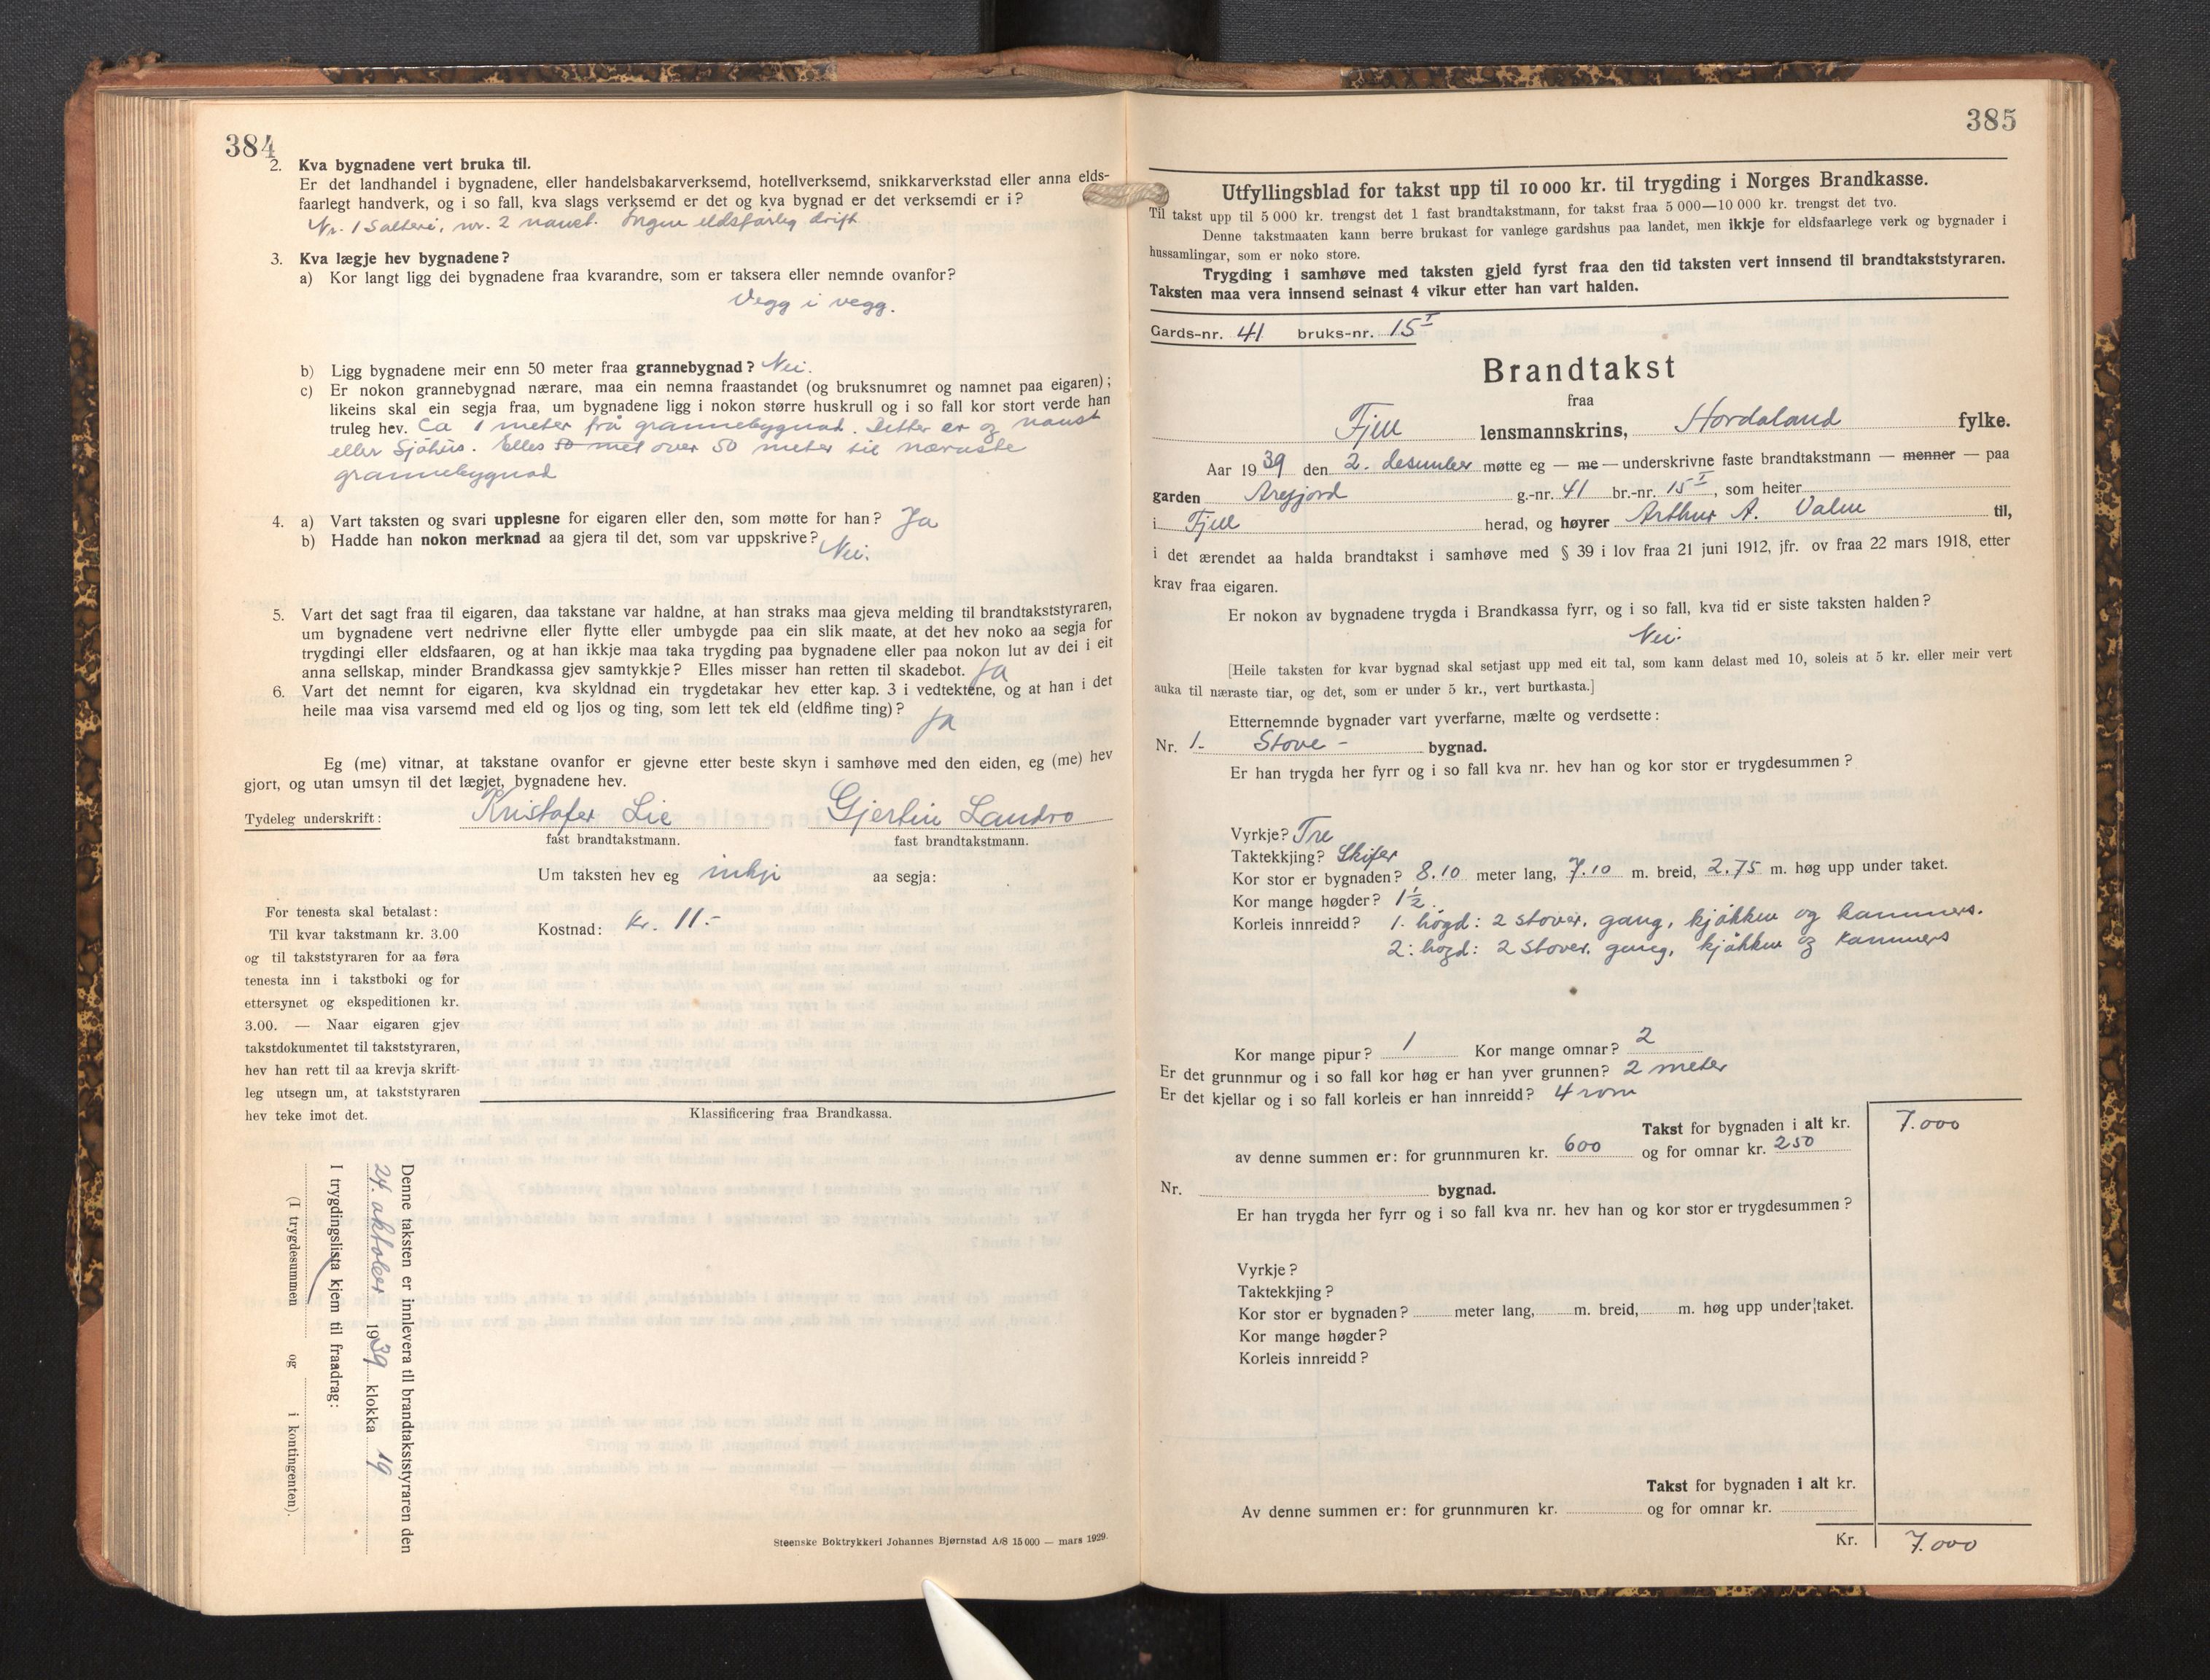 384
2. Kva bygnadene vert bruka til.
Er det landhandel i bygnadene, eller handelsbakarverksemd, hotellverksemd, snikkarverkstad eller anna elds-
faarlegt handverk, og i so fall, kva slags verksemd er det og kva bygnad er det verksemdi er i?
Nr. 1 Salteri, nr. 2 naust. Ingen eldsfårlig drift
3. Kva lægje hev bygnadene?
a) Kor langt ligg dei bygnadene fraa kvarandre, som er taksera eller nemnde ovanfor?
Vegg i vegg.
b) Ligg bygnadene meir enn 50 meter fraa grannebygnad? Nei.
c) Er nokon grannebygnad nærare, maa ein nemna fraastandet (og bruksnumret og namnet paa eigaren);
likeins skal ein segja fraa, um bygnadene ligg i nokon større huskrull og i so fall kor stort verde han
truleg hev. Ca 1 meter frå grannebygnad. Detter er og naust
eller Sjøhus. Elles 50 met over 50 meter til næraste
grannebygnad
4. a) Vart taksten og svari upplesne for eigaren eller den, som møtte for han? Ja
b) Hadde han nokon merknad aa gjera til det, som var uppskrive? Nei.
5. Vart det sagt fraa til eigaren, daa takstane var haldne, at han straks maa gjeva melding til brandtakststyraren,
um bygnadene vert nedrivne eller flytte eller umbygde paa ein slik maate, at det hev noko aa segja for
trygdingi eller eldsfaaren, og at han ikkje maa taka trygding paa bygnadene eller paa nokon lut av dei i eit
anna sellskap, minder Brandkassa gjev samtykkje? Elles misser han retten til skadebot. Ja
6. Vart det nemnt for eigaren, kva skyldnad ein trygdetakar hev etter kap. 3 i vedtektene, og at han i det
heile maa visa varsemd med eld og ljos og ting, som lett tek eld (eldfime ting)?
Ja
Eg (me) vitnar, at takstane ovanfor er gjevne etter beste skyn i samhøve med den eiden, eg (me) hev
gjort, og utan umsyn til det lægjet, bygnadene hev.
Tydeleg underskrift: Kristofer Lie Gjertin Landro
fast brandtakstmann. fast brandtakstmann.
Um taksten hev eg inkji aa segja:
Kostnad: kr. 11.-
For tenesta skal betalast:
Til kvar takstmann kr. 3.00
og til takststyraren for aa føra
tenesta inn i takstboki og for
ettersynet og ekspeditionen kr.
3.00. — Naar eigaren gjev
takstdokumentet til takststyraren,
hev han rett til aa krevja skrift-
leg utsegn um, at takststyraren
hev teke imot det.
Klassificering fraa Brandkassa.
Denne taksten er innlevera til brandtakststyraren den
24. oktober 1939 klokka 19
I trygdingslista kjem til fraadrag:
(I trygdesummen og i kontingenten).
Steenske Boktrykkeri Johannes Bjørnstad A/S 15 000 — mars 1929.
385
Utfyllingsblad for takst upp til 10 000 kr. til trygding i Norges Brandkasse.
Til takst upp til 5 000 kr. trengst det 1 fast brandtakstmann, for takst fraa 5 000—10 000 kr. trengst det tvo.
Denne takstmaaten kann berre brukast for vanlege gardshus paa landet, men ikkje for eldsfaarlege verk og bygnader i
hussamlingar, som er noko store.
Trygding i samhøve med taksten gjeld fyrst fraa den tid taksten vert innsend til brandtakststyraren.
Taksten maa vera innsend seinast 4 vikur etter han vart halden.
Gards-nr. 41 bruks-nr. 15 I
Brandtakst
fraa
Fjell lensmannskrins, Hordaland fylke.
Aar 1939 den 2. desember møtte eg — me — underskrivne faste brandtakstmann — menner — paa
garden Arefjord g.-nr. 41 br.-nr. 15 I, som heiter
i Fjell herad, og høyrer Arthur A. Valen til,
i det ærendet aa halda brandtakst i samhøve med § 39 i lov fraa 21 juni 1912, jfr. ov fraa 22 mars 1918, etter
krav fraa eigaren.
Er nokon av bygnadene trygda i Brandkassa fyrr, og i so fall, kva tid er siste taksten halden?
Nei.
[Heile taksten for kvar bygnad skal setjast upp med eit tal, som kann delast med 10, soleis at 5 kr. eller meir vert
auka til næraste tiar, og det, som er under 5 kr., vert burtkasta.]
Etternemnde bygnader vart yverfarne, mælte og verdsette:
Nr. 1. Stove - bygnad.
Er han trygda her fyrr og i so fall kva nr. hev han og kor stor er trygdesummen?
Vyrkje? Tre
Taktekkjing? Skifer
Kor stor er bygnaden? 8.10 meter lang, 7.10 m. breid, 2.75 m. høg upp under taket.
Kor mange høgder? 1½.
Korleis innreidd? 1. høgd: 2 stover, gang, kjøkken og kammers.
2. høgd: 2 stover, gang, kjøkken og kammers
Kor mange pipur? 1 Kor mange omnar? 2
Er det grunnmur og i so fall kor høg er han yver grunnen? 2 meter
Er det kjellar og i so fall korleis er han innreidd? 4 rom
Takst for bygnaden i alt kr. 7.000
av denne summen er: for grunnmuren kr. 600 og for omnar kr. 250
Nr. bygnad.
Er han trygda her fyrr og i so fall kva nr. hev han og kor stor er trygdesummen?
Vyrkje?
Taktekkjing?
Kor stor er bygnaden? meter lang, m. breid, m. høg upp under taket.
Kor mange høgder?
Korleis innreidd?
Takst for bygnaden i alt kr.
Av denne summen er: for grunnmuren kr. og for omnar kr.
Kr. 7.000